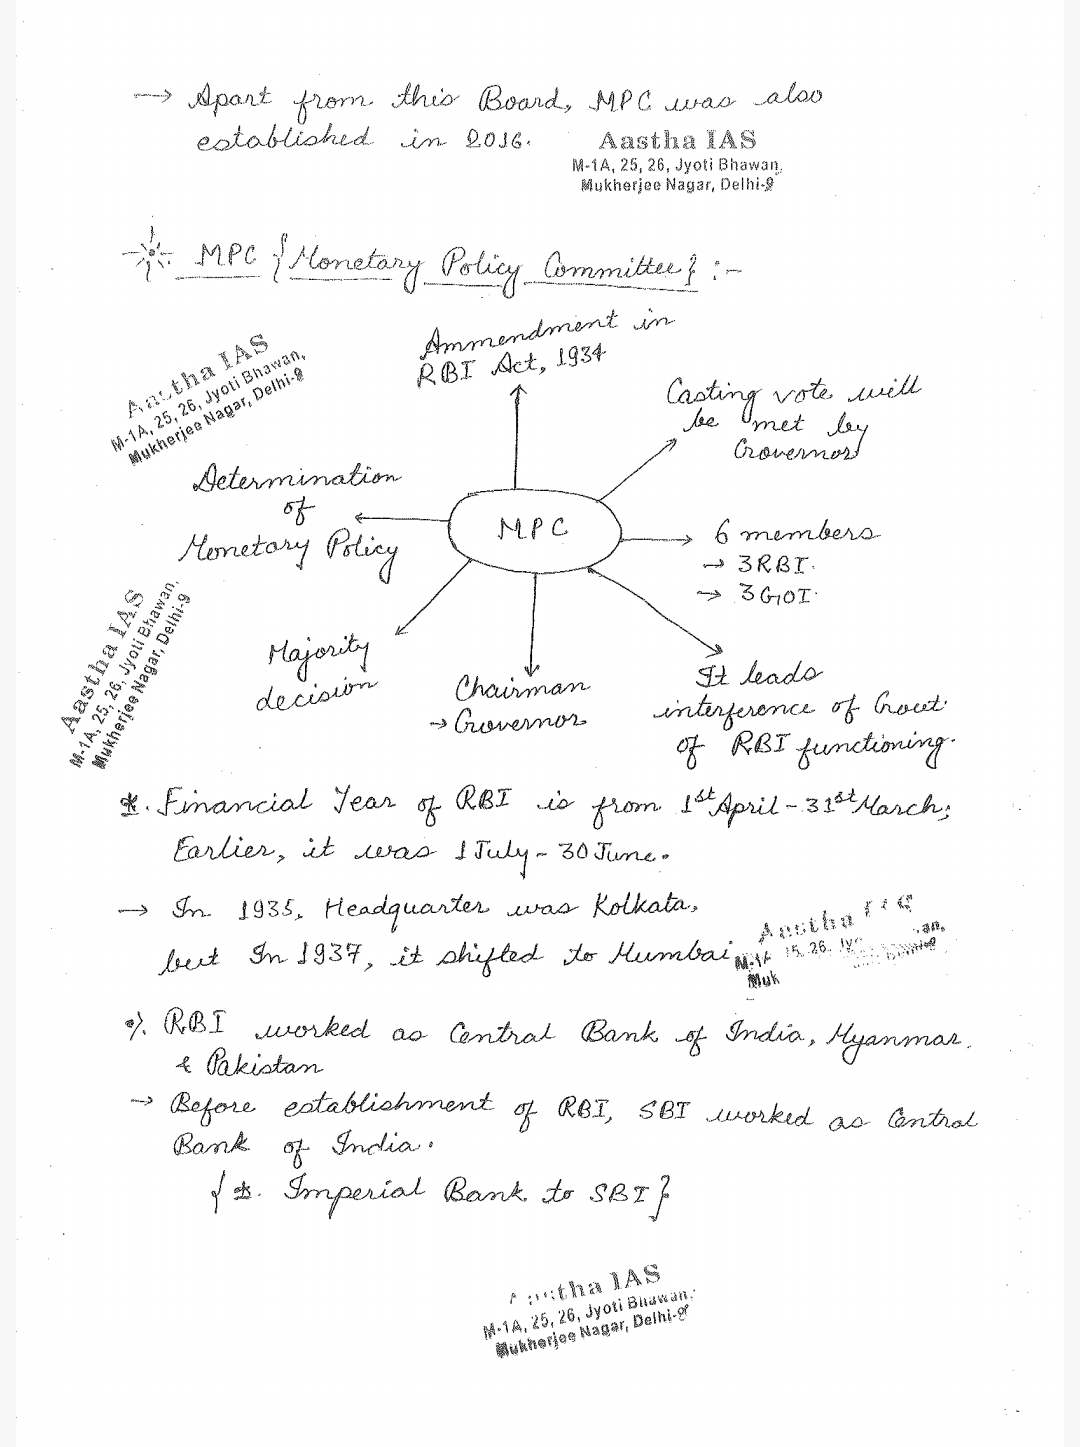 → Apart from this Board, MPC was also
established in 2016.
Aastha IAS
M-1A, 25, 26, Jyoti Bhawan,
Mukherjee Nagar, Delhi-9
MPC {Monetary Policy Committee} :-
Ammendment in
RBI Act, 1934
Aastha IAS
M-1A, 25, 26, Jyoti Bhawan,
Mukherjee Nagar, Delhi-9
Casting vote will
be met by
Governor
Determination
of
Monetary Policy
MPC
6 members
→ 3RBI.
→ 3GOI.
Aastha IAS
M-1A, 25, 26, Jyoti Bhawan,
Mukherjee Nagar, Delhi-9
Majority
decision
Chairman
→ Governor
It leads
interference of Govt.
of RBI functioning.
*. Financial Year of RBI is from 1st April - 31st March;
Earlier, it was 1 July - 30 June.
→ In 1935, Headquarter was Kolkata,
but In 1937, it shifted to Mumbai
Aastha
M-1A 15, 26,
Muk
RBI worked as Central Bank of India, Myanmar
& Pakistan
→ Before establishment of RBI, SBI worked as Central
Bank of India.
{ *. Imperial Bank to SBI}
Aastha IAS
M-1A, 25, 26, Jyoti Bhawan,
Mukherjee Nagar, Delhi-9